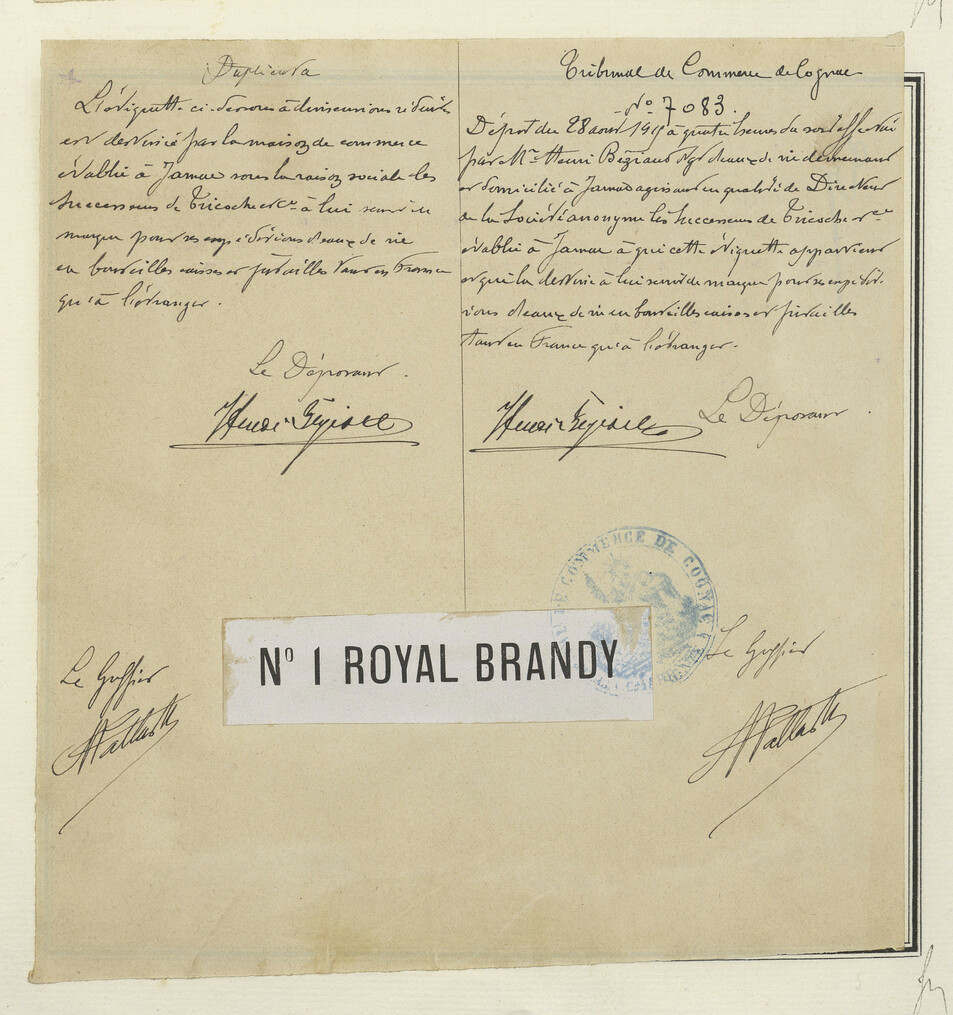 Duplicata
L'étiquette ci-dessous à dimensions réduites
est destinée par la maison de commerce
établie à Jarnac sous la raison sociale les
Successeurs de Tricoche et Cie à lui servir de
marque pour ses expéditions d'eaux de vie
en bouteilles caisses et futailles tant en France
qu'à l'étranger.
Le Déposant.
Le Greffier
Tribunal de Commerce de Cognac
No 7083.
Dépôt du 28 aout à quatre heures du soir effectué
par Mr Henri d'eaux de vie demeurant
et domicilié à Jarnac agissant en qualité de Directeur
de la Société anonyme les Successeurs de Tricoche et Cie
établie à Jarnac à qui cette étiquette appartient
et qui la destine à lui servir de marque pour ses expédi-
tions d'eaux de vie en bouteilles caisses et futailles
tant en France qu'à l'étranger.
Le Déposant
COMMERCE DE COGNAC
Le Greffier
No 1 ROYAL BRANDY